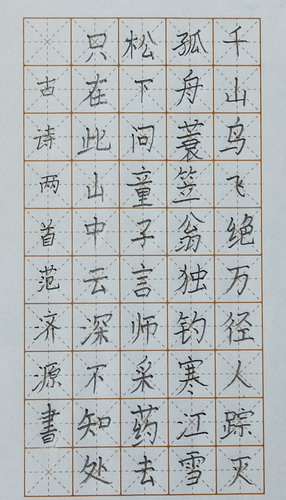 千山鸟飞绝万径人踪灭
孤舟蓑笠翁独钓寒江雪
松下问童子言师采药去
只在此山中云深不知处
古诗两首范济源書